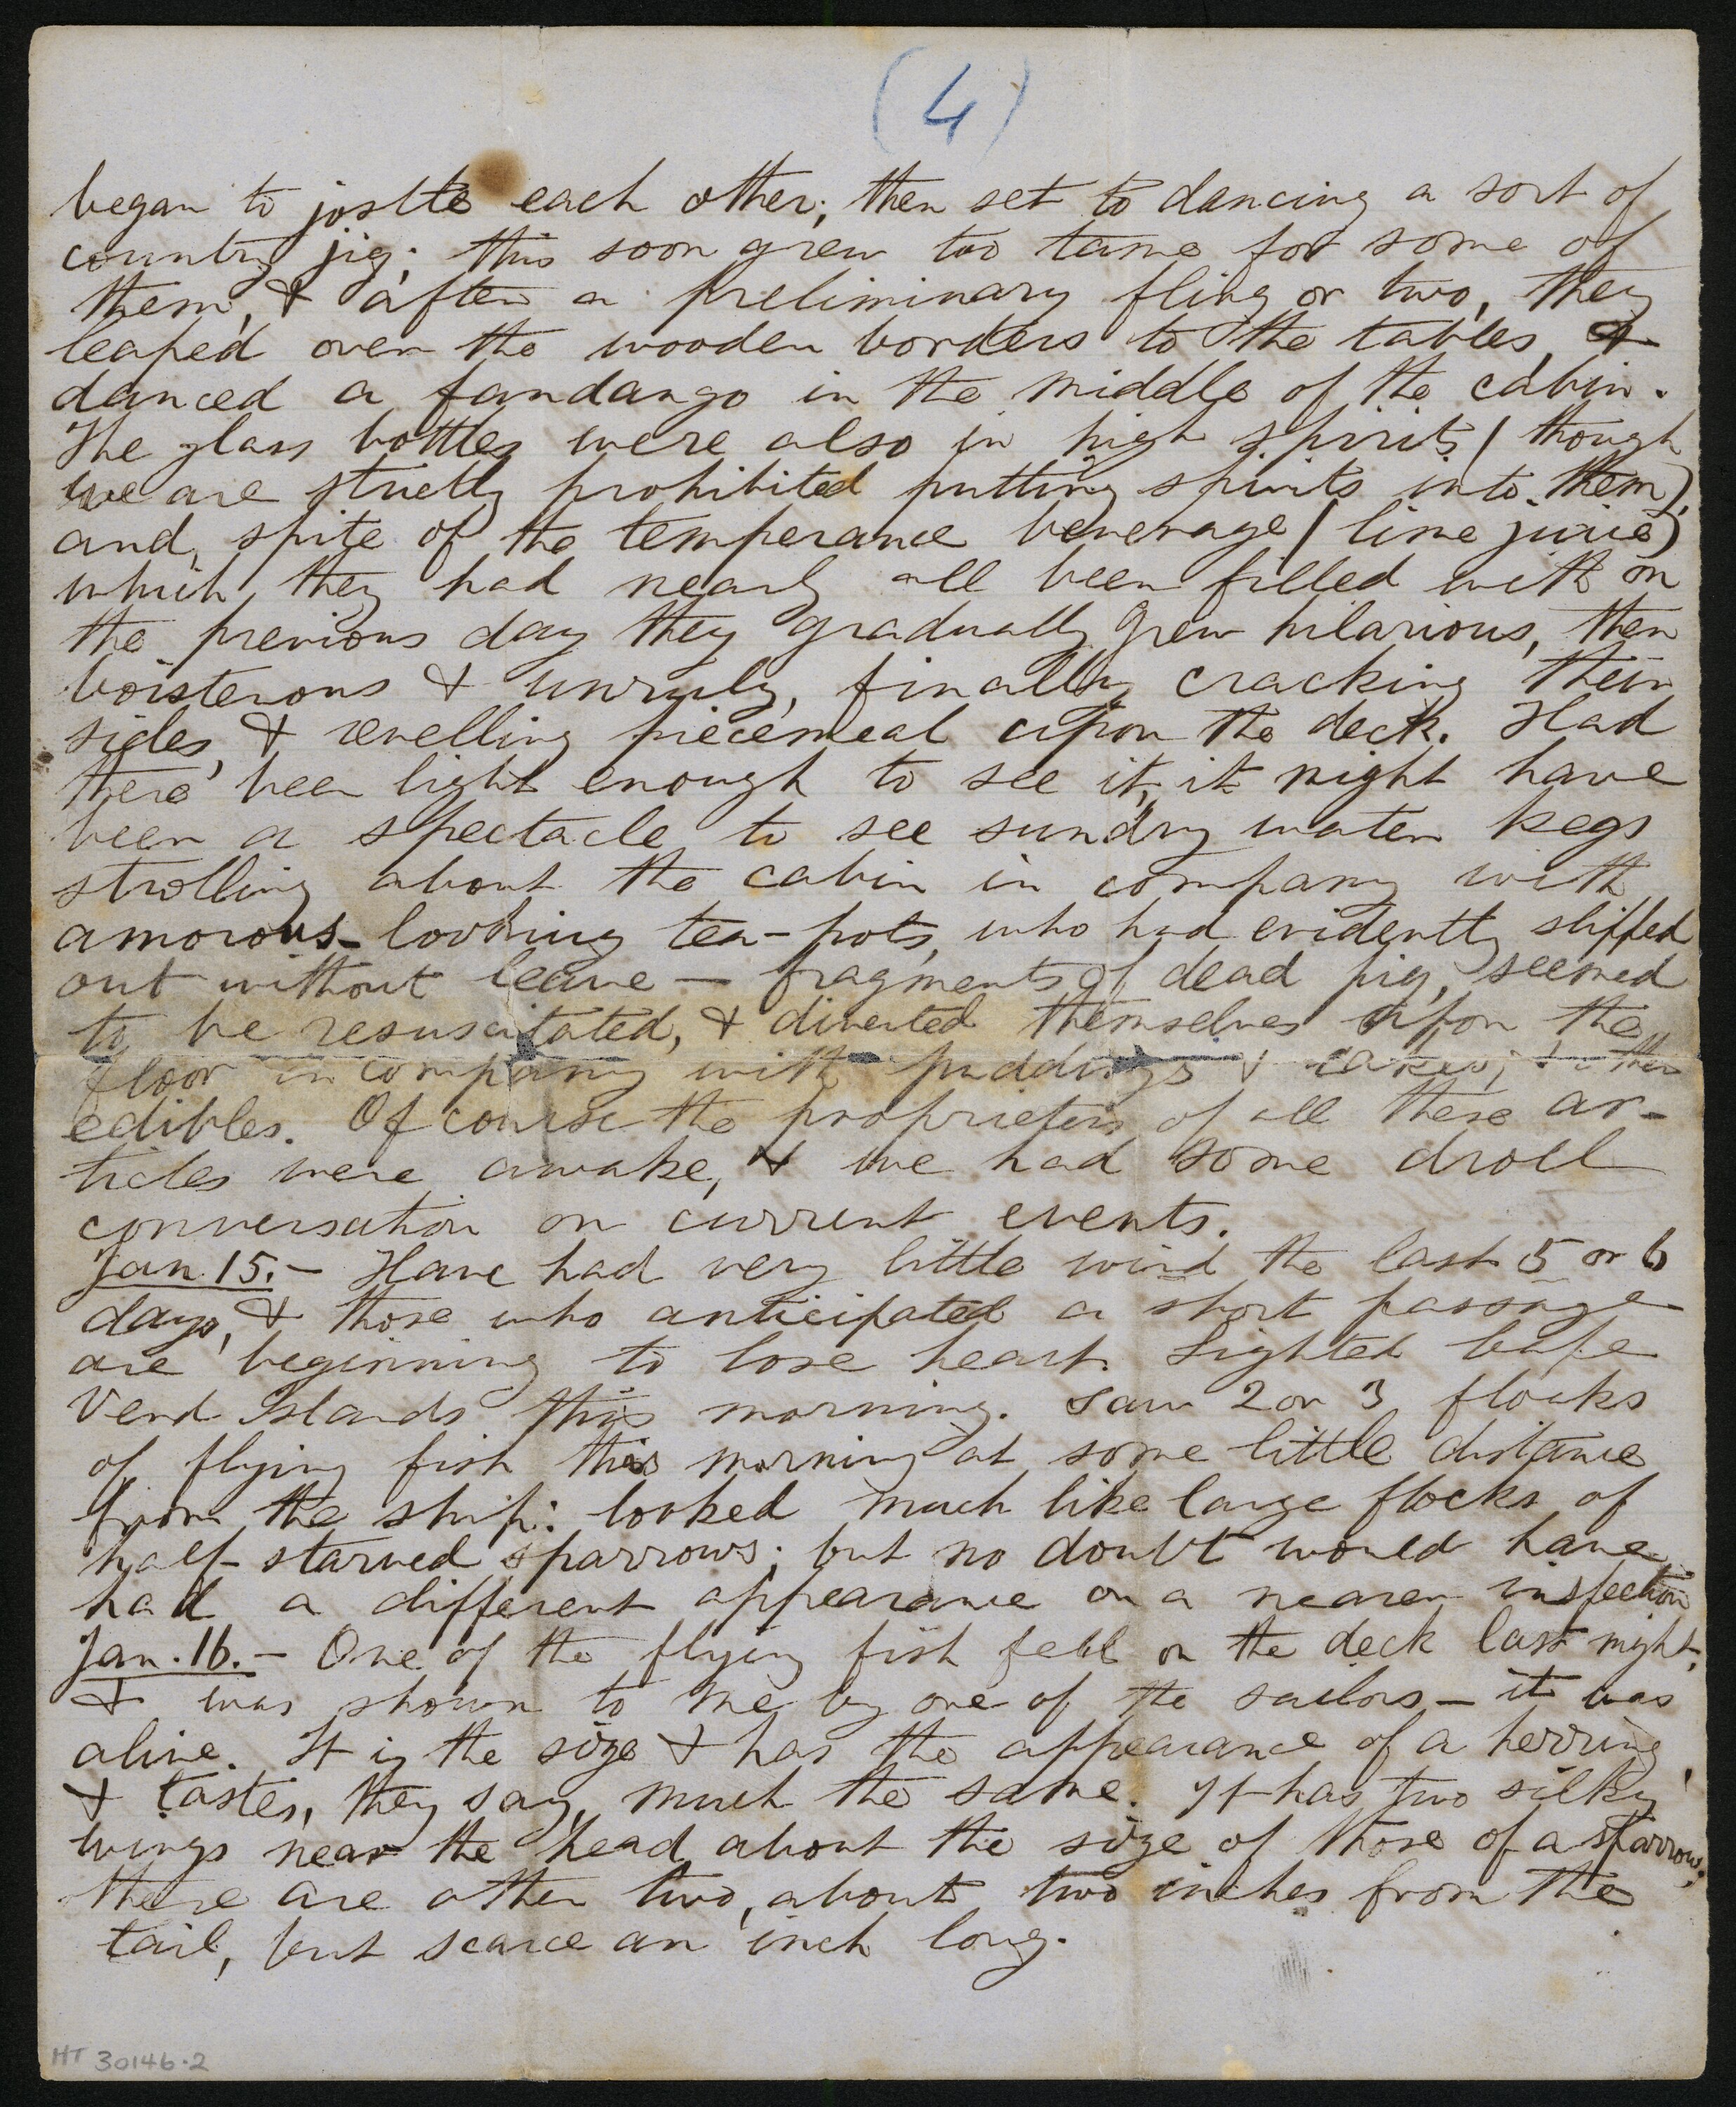 (4)
began to jostle each other; then set to dancing a sort of
country jig; this soon grew too tame for some of
them, & after a preliminary fling or two, they
leaped over the wooden borders to the tables, &
danced a fandango in the middle of the cabin.
The glass bottles were also in high spirits (though
we are strictly prohibited putting spirits into them),
and, spite of the temperance beverage (lime juice)
which they had nearly all been filled with on
the previous day they gradually grew hilarious, then
boisterous & unruly, finally cracking their
sides, & revelling piecemeal upon the deck. Had
there been light enough to see it, it might have
been a spectacle to see sundry water kegs
strolling about the cabin in company with
amorous-looking tea-pots, who had evidently slipped
out without leave — fragments of dead pig, seemed
to be resuscitated, & diverted themselves upon the
floor in company with puddings & cakes, & other
edibles. Of course the proprietors of all these ar-
ticles were awake, & we had some droll
conversation on current events.
Jan. 15. - Have had very little wind the last 5 or 6
days, & those who anticipated a short passage
are beginning to lose heart. Sighted Cape
Verd Islands this morning. Saw 2 or 3 flocks
of flying fish this morning at some little distance
from the ship: looked much like large flocks of
half-starved sparrows; but no doubt would have
had a different appearance on a nearer inspection
Jan. 16. - One of the flying fish fell on the deck last night,
& was shown to me by one of the sailors — it was
alive. It is the size & has the appearance of a herring,
& tastes, they say, much the same. It has two silky
wings near the head about the size of those of a sparrow;
there are other two, about two inches from the
tail, but scarce an inch long.
HT 30146.2